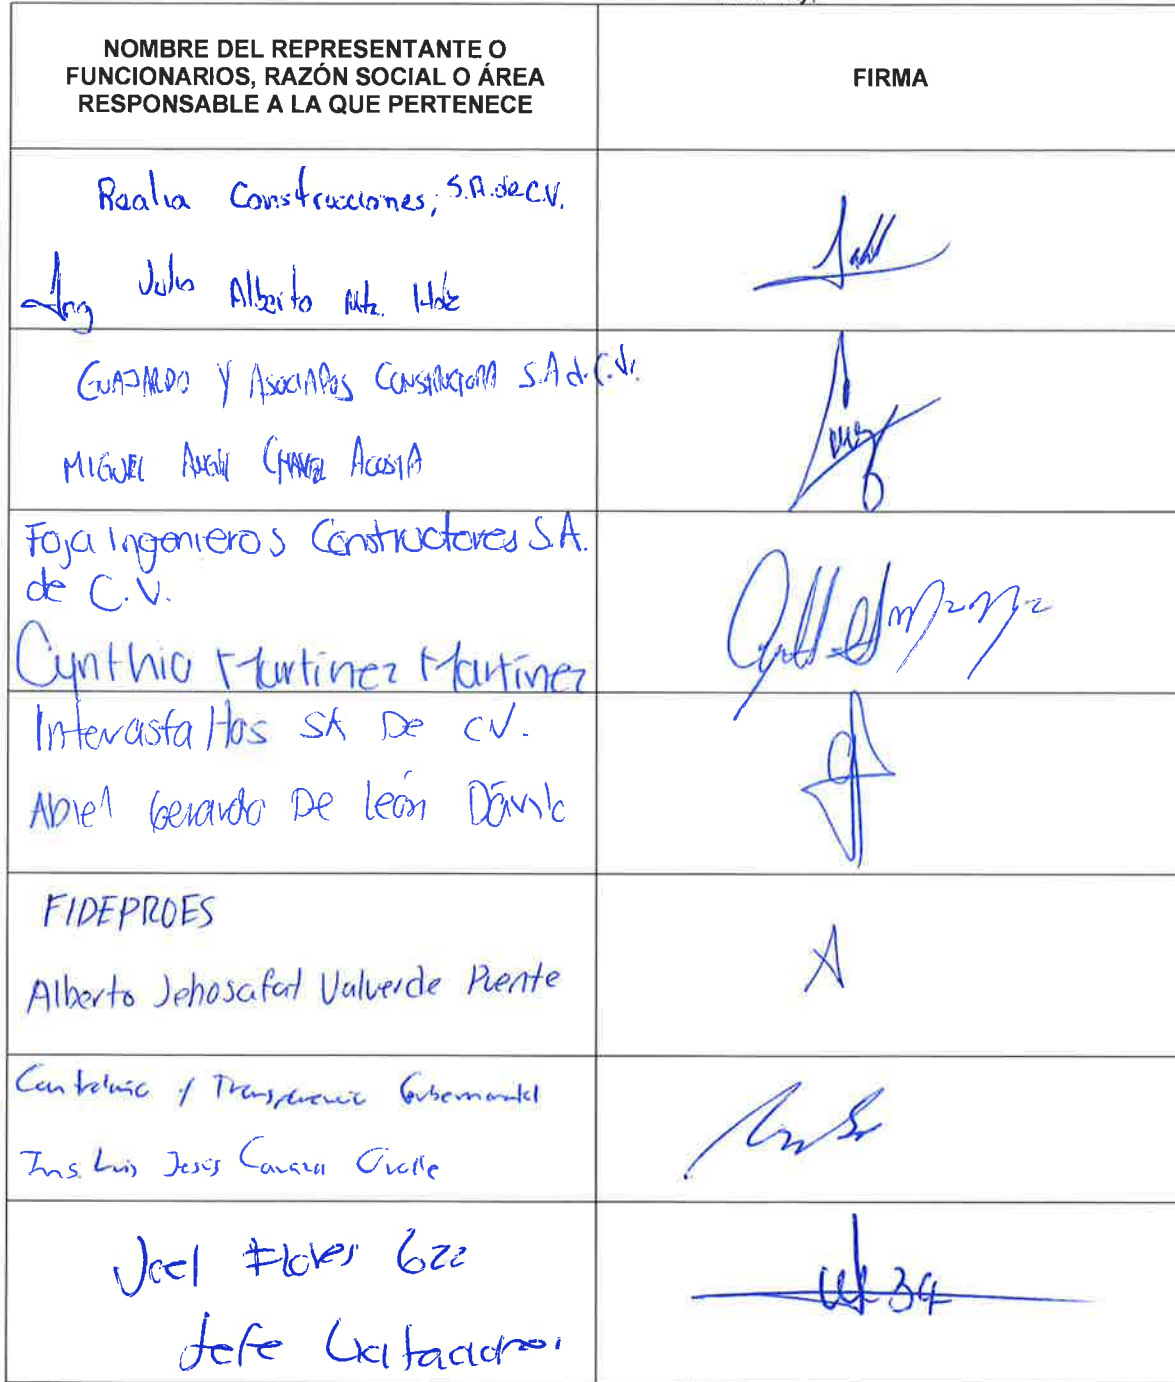 NOMBRE DEL REPRESENTANTE O
FUNCIONARIOS, RAZÓN SOCIAL O ÁREA
RESPONSABLE A LA QUE PERTENECE
FIRMA
Realia Construcciones, S.A. de C.V.
Ing Julio Alberto Mtz. Hdz
GUAJARDO Y ASOCIADOS CONSTRUCTORA S.A d. C.V.
MIGUEL ANGEL CHAVEZ ACOSTA
Foja Ingenieros Constructores S.A.
de C.V.
Cynthia Martínez Martínez
Interasfaltos SA De CV.
Abiel Gerardo De león Dávila
FIDEPROES
Alberto Jehosafat Valverde Puente
Contraloria y Transparencia Gubernamental
Ing. Luis Jesús Ovalle
Joel Flores Gzz
Jefe